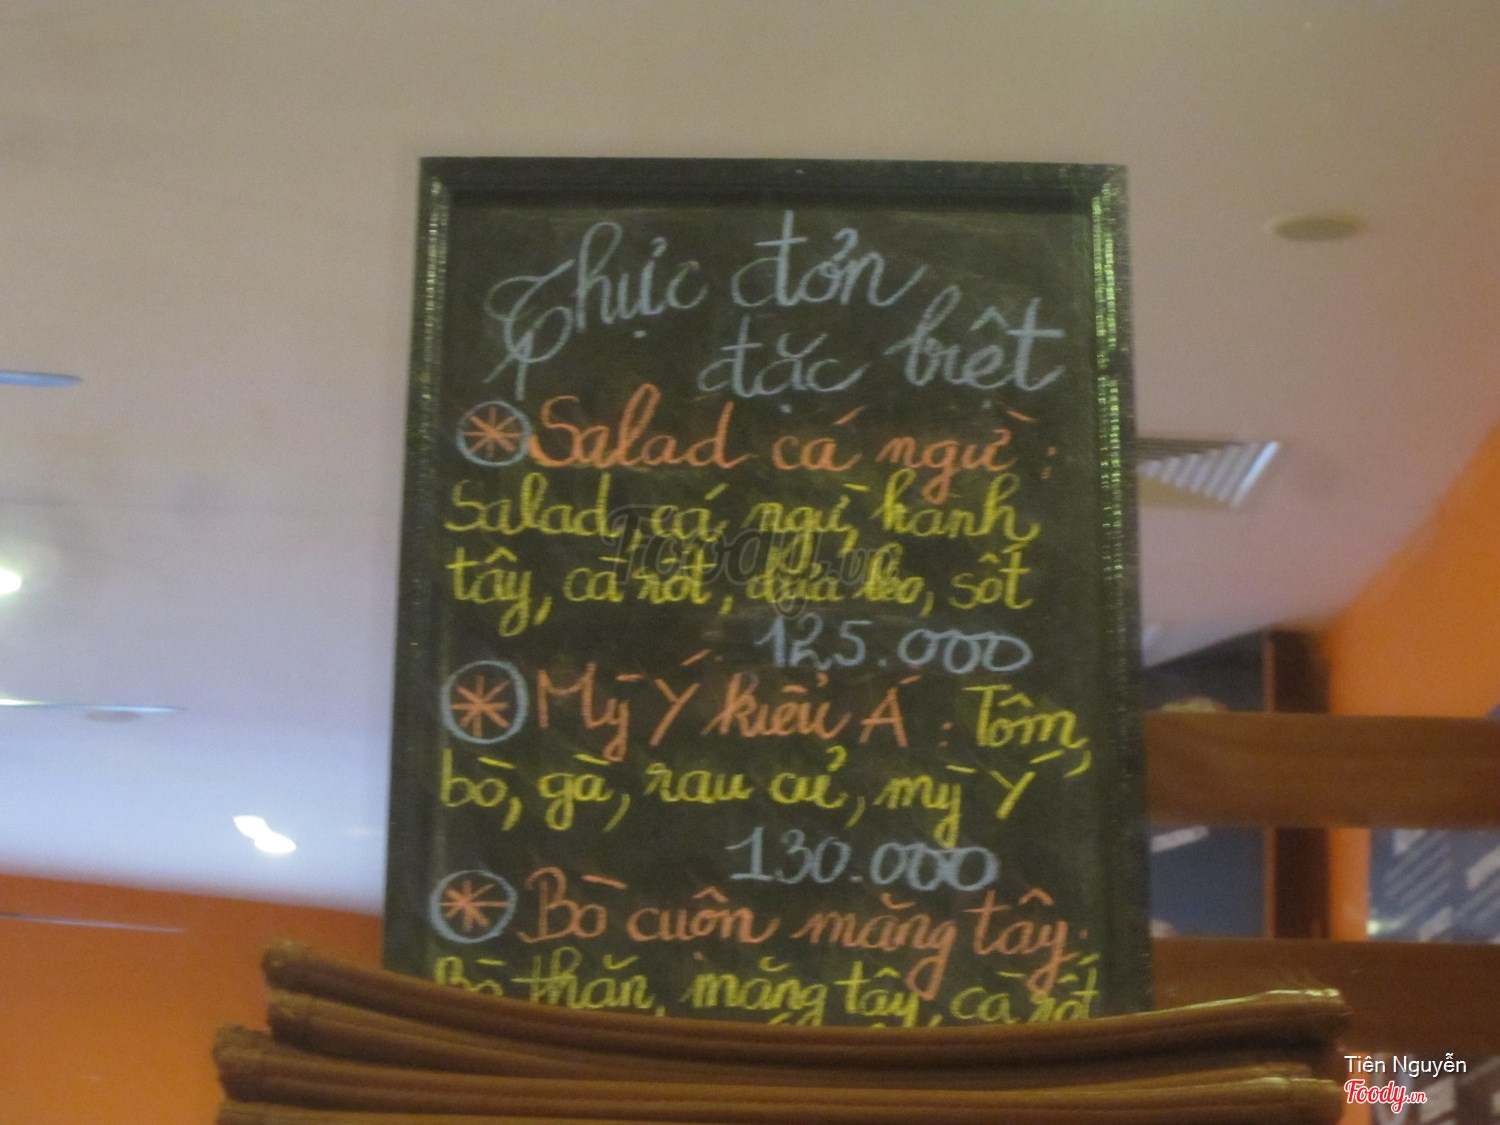 Thực đơn
đặc biệt
Salad cá ngừ :
Salad, cá ngừ, hành
tây, cà rốt, dưa leo, sốt
125.000
Mỳ Ý kiểu Á : Tôm,
bò, gà, rau củ, mỳ Ý
130.000
Bò cuộn măng tây:
Bò thăn, măng tây, cà rốt
Foody.vn
Tiên Nguyễn
Foody.vn